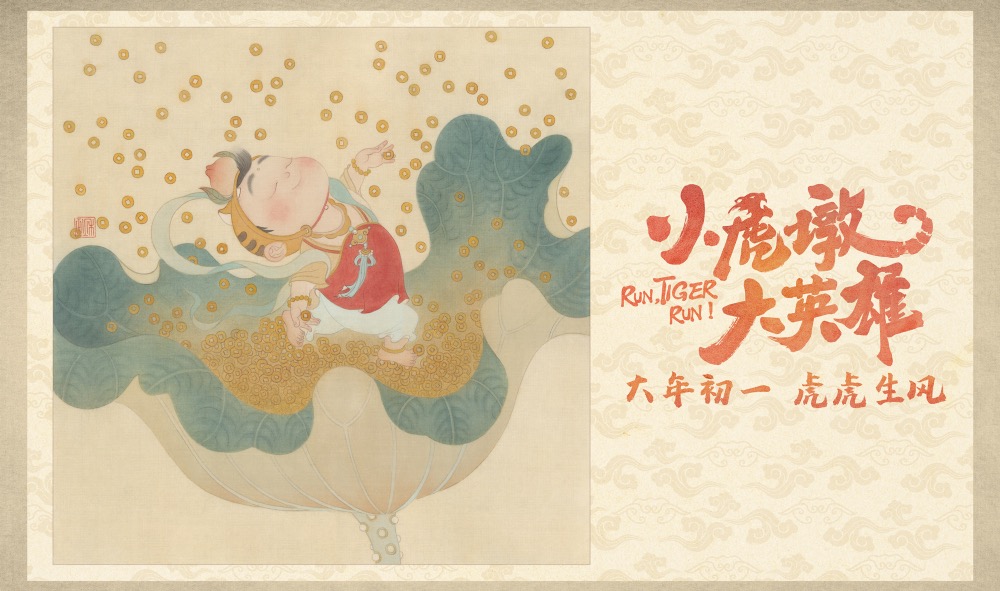 小虎墩
大英雄
RUN, TIGER
RUN!
大年初一 虎虎生风